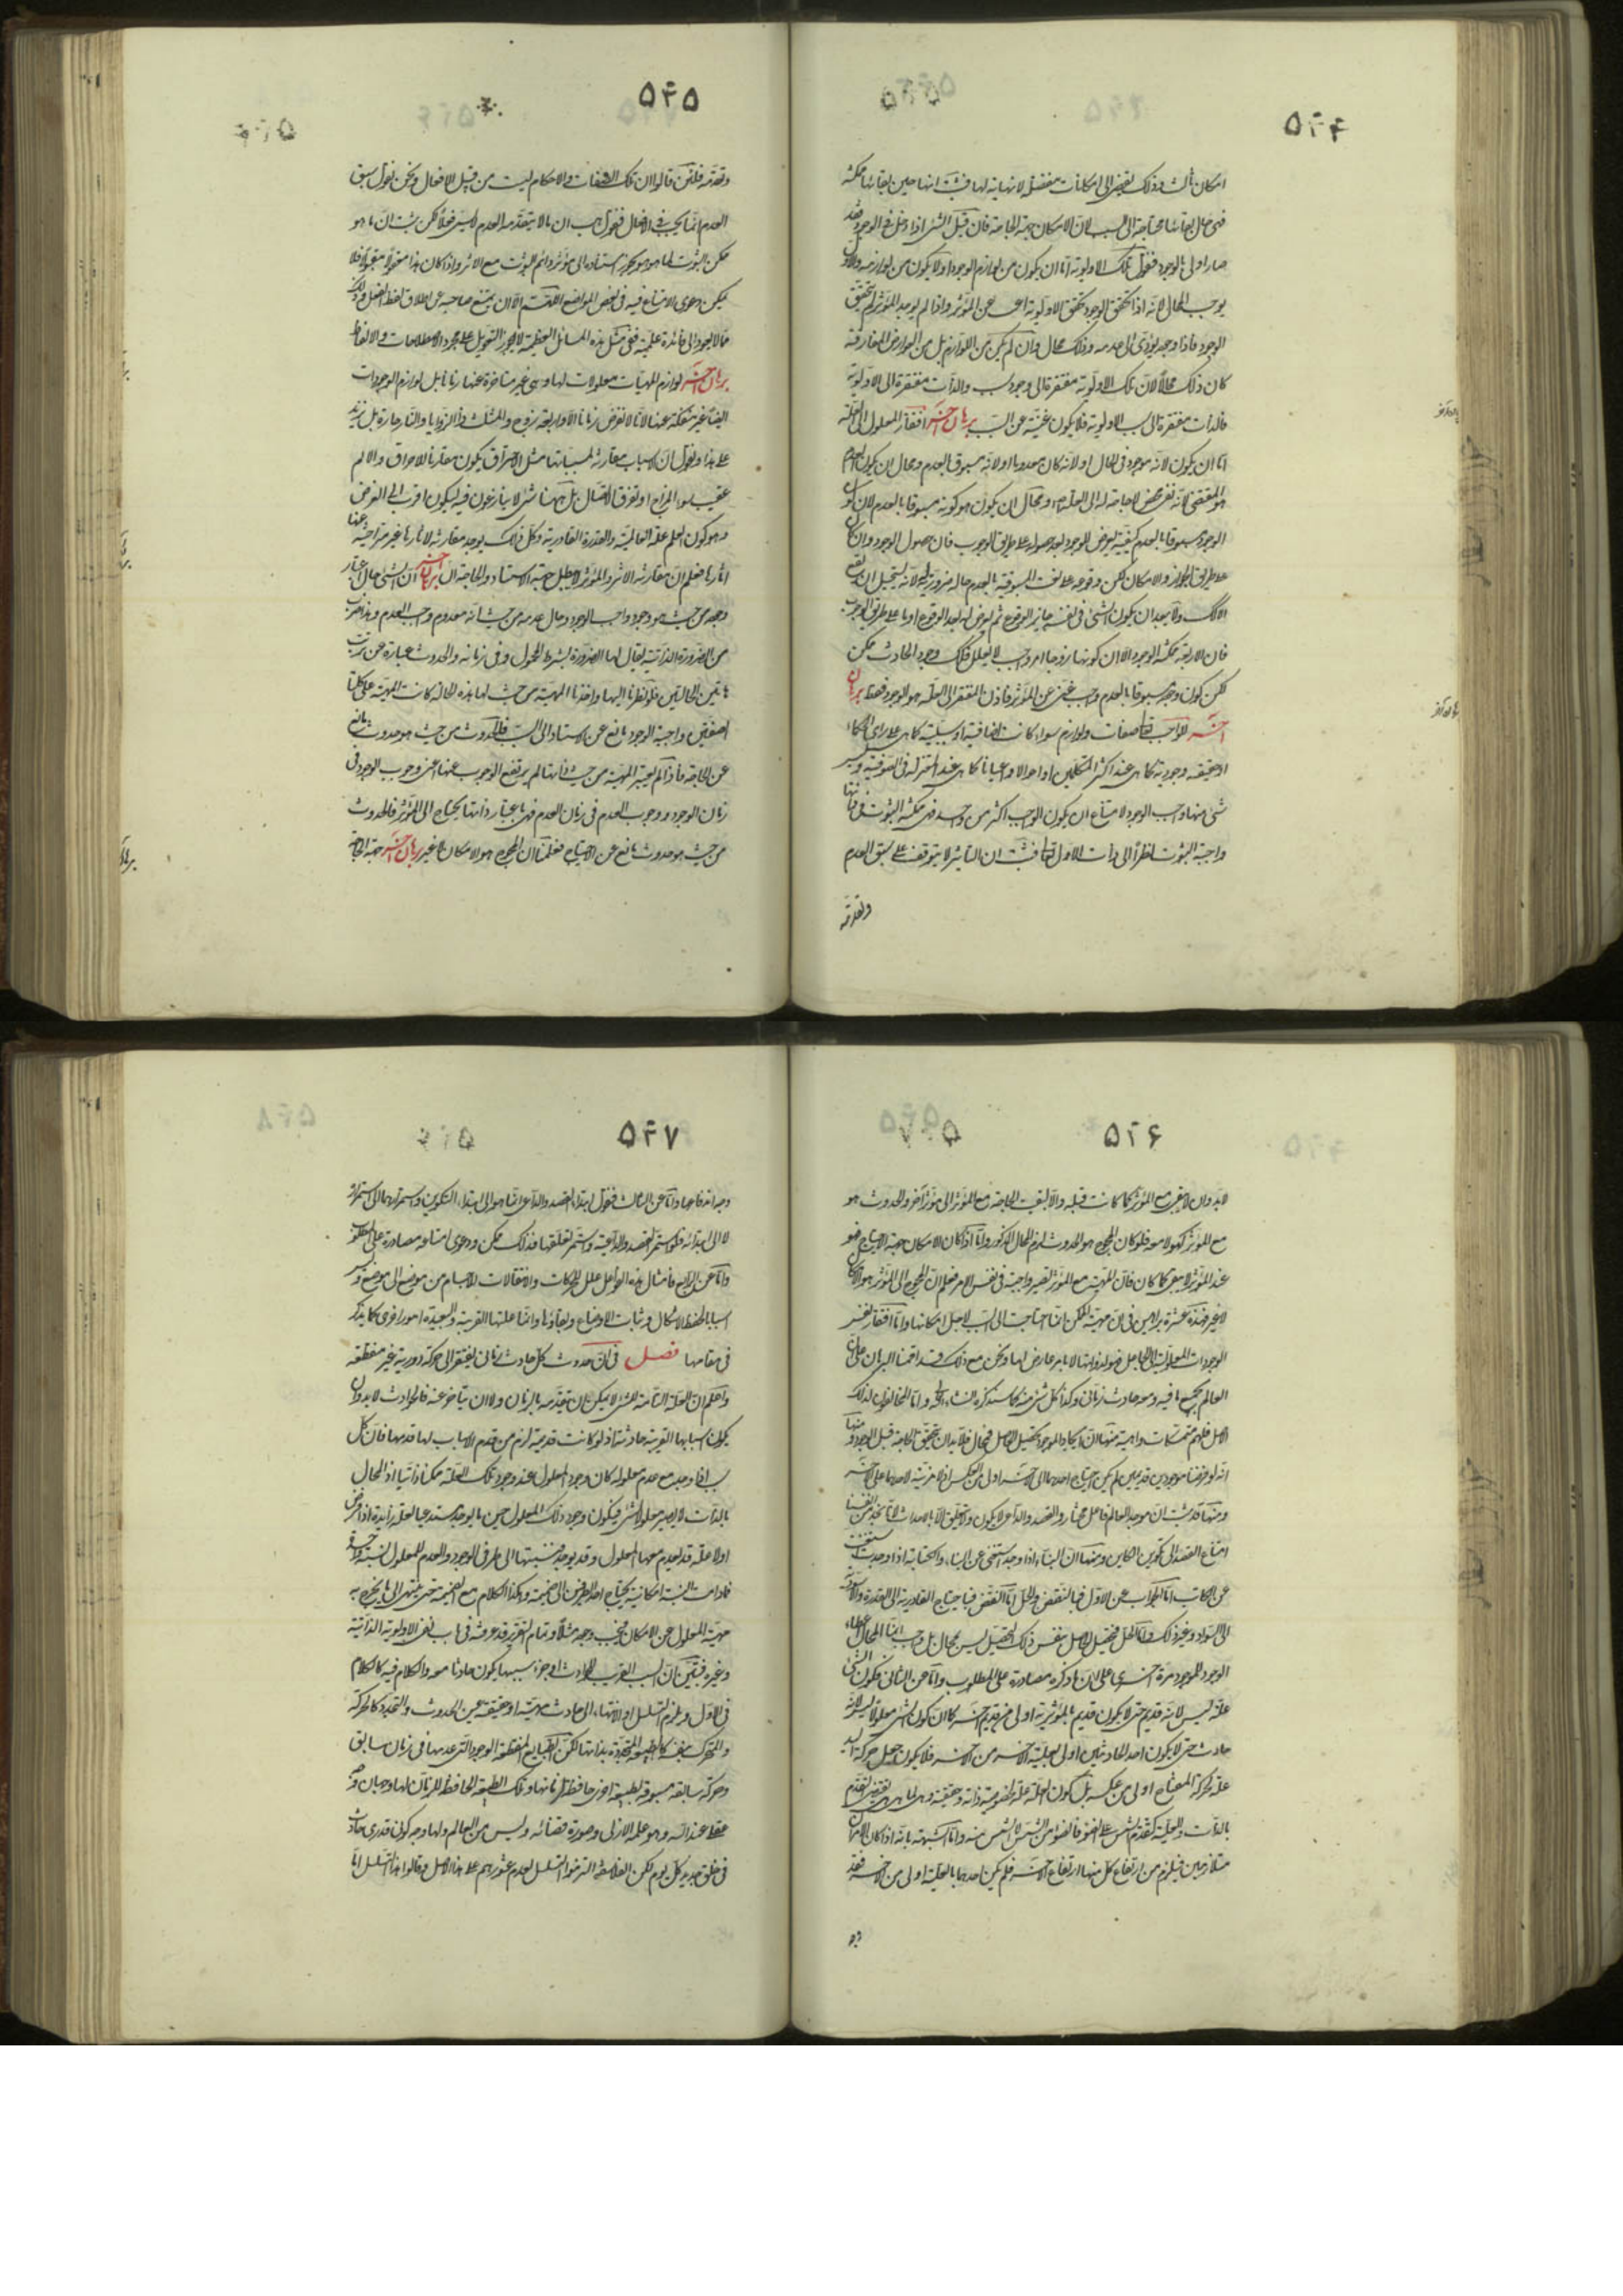 ۵۲۴
امكان ثالث وذلك يفضى الى امكانات مفصلة لا نهاية لها فثبت انها حين بقائها ممكنة
فهى حال بقائها محتاجة الى السبب لان الامكان جهة الحاجة فان قيل الشئ اذا دخل فى الوجود فقد
صار اولى بالوجود فنقول تلك الاولوية اما ان يكون من لوازم الوجود او لا يكون من لوازمه والاول
يوجب المحال لانه اذا تحقق الوجود تحقق الاولوية اعنى عن المؤثر واذا لم يوجد المؤثر لم يتحقق
الوجود فاذا وجد يؤدى الى عدمه وذلك محال وان لم يكن من اللوازم بل من العوارض المفارقة
كان ذلك محالا لان تلك الاولوية مفتقرة الى وجود سبب والذات مفتقرة الى الاولوية
فالذات مفتقرة الى سبب الاولوية فلا يكون غنية عن السبب برهان اخر افتقار المعلول الى العلة
اما ان يكون لانه موجود فى الحال او لانه كان معدوما او لانه مسبوق بالعدم ومحال ان يكون العدم
هو المقتضى لانه نفى محض لا حاجة له الى العلة ومحال ان يكون هو كونه مسبوقا بالعدم لان كون
الوجود مسبوقا بالعدم كيفية تعرض للوجود بعد حصوله على طريق الوجوب فان حصول الوجود وان كان
على طريق الجواز والامكان لكن وقوعه على نعت المسبوقية بالعدم حالة ضرورية لانه يستحيل ان يقع
الا كذلك ولا يبعد ان يكون الشئ فى نفسه جائز الوقوع ثم يعرض له بعد الوقوع اوصاف على طريق الوجوب
فان الاربعة ممكنة الوجود الا ان كونها زوجا امر واجب لا يعلل فكذلك وجود الحادث ممكن
لكن كون وجوده مسبوقا بالعدم واجب غنى عن المؤثر فاذن المفتقر الى العلة هو الوجود فقط برهان
اخر للواجب تعالى صفات ولوازم سواء كانت اضافية او سلبية كما هى على راى الحكماء
او حقيقية وجودية كما هى عند اكثر المتكلمين او احوالا او اعيانا كما هى عند المعتزلة والصوفية وليس
شئ منها واجب الوجود لامتناع ان يكون الواجب اكثر من واحد فهى ممكنة الثبوت فى ذاتها
واجبة الثبوت نظرا الى ذات الاول تعالى فثبت ان التاثير لا يتوقف على سبق العدم
وتقدمه
۵۲۵
وتقدمه فلئن قالوا ان تلك الصفات والاحكام ليست من قبيل الافعال ونحن نقول سبق
العدم انما يجب فى الافعال فنقول هب ان ما لا يتقدمه العدم لا يسمى فعلا لكن ثبت ان ما هو
ممكن الثبوت لما هو هو يجوز استناده الى مؤثر دائم الثبوت مع الاثر واذا كان هذا معقولا مقبولا فلا
يمكن دعوى الامتناع فيه فى بعض المواضع اللهم الا ان يمتنع صاحبه عن اطلاق لفظ الفعل وذلك
مما لا يعود الى فائدة علمية ففى مثل هذه المسائل العظيمة لا يجوز التعويل على مجرد الاصطلاحات والالفاظ
برهان اخر لوازم المهيات معلولات لها وهى غير متاخرة عنها زمانا بل لوازم الوجودات
ايضا غير منفكة عنها لانا لا نفرض زمانا الا والاربعة زوج والمثلث ذو الزوايا والنار حارة بل نزيد
على هذا ونقول ان الاسباب مقارنة لمسبباتها مثل الاحتراق يكون مقارنا للاحراق والالم
عقيب سوء المزاج او تفرق الاتصال بل ههنا شئ لا ينازعون فيه ليكون اقرب الى الغرض
وهو كون العلم علة العالمية والقدرة القادرية وكل ذلك يوجد مقارنة لاثارها غير متراخية عنها
اثارها فعلم ان مقارنة الاثر والمؤثر لا يبطل جهة الاستناد والحاجة برهان اخر ان الشئ حال اعتبار
وجوده من حيث هو موجود واجب الوجود وحال عدمه من حيث انه معدوم واجب العدم وهذا ضرب
من الضرورة الذاتية يقال لها الضرورة بشرط المحمول وفى زمانه والحدوث عبارة عن ترتب
هاتين الحالتين فلو نظرنا اليها واخذنا المهية من حيث لها هذه الحالة كانت المهية على كلتا
الصفتين واجبة الوجود مانع عن الاستناد الى السبب فالحدوث من حيث هو حدوث مانع
عن الحاجة فاذا لم يعتبر المهية من حيث ذاتها لم يرتفع الوجوب عنها اعنى وجوب الوجود فى
زمان الوجود ووجوب العدم فى زمان العدم فهى باعتبار ذاتها يحتاج الى المؤثر فالحدوث
من حيث هو حدوث مانع عن الاحتياج فعلمنا ان المحوج هو الامكان لا غير برهان اخر جهة الحاجة
۵۲۶
لا بد وان لا يبقى مع المؤثر كما كانت قبله والا لبقيت الحاجة مع المؤثر الى مؤثر اخر والحدوث هو
مع المؤثر كهو لا معه فلو كان المحوج هو الحدوث لزم المحال المذكور واما اذا كان الامكان جهة الاحتياج فهو
عند المؤثر لا يبقى كما كان فان المهية مع المؤثر تصير واجبة فى نفس الامر فعلم ان المحوج الى المؤثر هو الامكان
لا غير فهذه عشرة براهين فى ان مهية الممكن انما احتاجت الى السبب لاجل امكانها واما افتقار نفس
الوجودات المعلولية الى الجاعل فهو لذواتها لا بامر عارض لها ونحن مع ذلك قد اقمنا البرهان على ان
العالم بجميع ما فيه ومعه حادث زمانى وكذا كل شئ منه كما سنذكره انشاء الله واما المخالفون لذلك
الاصل فلهم متمسكات واهية منها ان ايجاد الموجود تحصيل الحاصل فمحال فلا بد ان يتحقق الحاجة قبل الوجود ومنها
انه لو فرضنا موجودين قديمين لم يكن احتياج احدهما الى الاخر اولى من العكس اذ لا مزية لاحدهما على الاخر
ومنها قد ثبت ان موجد العالم فاعل مختار والقصد والداعى لا يكون ولا يتعلق الا بالاحداث لانا نجد من انفسنا
امتناع القصد الى تكوين الكاين ومنها ان البناء اذا وجد استغنى عن البناء والكتابة اذا وجدت استغنت
عن الكاتب اما الجواب عن الاول فبالنقض والحل اما النقض فباحتياج القادرية الى القدرة والاسودية
الى السواد وغير ذلك واما الحل فتحصيل الحاصل بنفس ذلك التحصيل ليس بمحال بل واجب انما المحال اعطاء
الوجود للموجود مرة اخرى على ان ما ذكره مصادرة على المطلوب واما عن الثانى فكون الشئ
علة ليس لانه قديم حتى لا يكون قديم بالمؤثرية اولى من قديم اخر كما ان كون الشئ معلولا ليس لانه
حادث حتى لا يكون احد الحادثين اولى بعلية الاخر من الاخر فلا يكون جعل حركة اليد
علة لحركة المفتاح اولى من عكسه بل كون العلة علة لخصوصية ذاته وحقيقته وهى لما هى هى يقتضى التقدم
بالذات والعلية كتقدم الشمس على الضوء فالضوء من الشمس لا الشمس منه واما الشبهة بانه اذا كان الاثران
متلازمين فيلزم من ارتفاع كل منهما ارتفاع الاخر فلم يكن احدهما بالعلية اولى من الاخر فقد
۵۲۷
وجه اندفاعها واما عن الثالث فنقول ابتداء القصد والداعى انما هو الى ابتداء التكوين واستمرارهما الى استمراره
لا الى ابتدائه فلو استمر القصد والداعية واستمر تعلقها فذلك ممكن ودعوى امتناعه مصادرة على المطلوب
واما عن الرابع فامثال هذه الفواعل علل للحركات والانتقالات للاجسام من موضع الى موضع وليس
اسبابا لحفظ الاشكال وثبات الاوضاع وبقاؤها وانما علتها القريبة والبعيدة امور اخرى كما يذكر
فى مقامها فصل فى ان حدوث كل حادث زمانى يفتقر الى حركة دورية غير منقطعة
واعلم ان العلة التامة للشئ لا يمكن ان يتقدمه بالزمان ولا ان يتاخر عنه فالحوادث لا بد وان
يكون اسبابها القريبة حادثة اذ لو كانت قديمة لزم من قدم الاسباب لها قدمها فان كل
سبب اذا وجد مع عدم معلوله كان وجود المعلول عند وجود تلك العلة ممكنا ذاتيا اذ المحال
بالذات لا يصير معلولا لشئ فيكون وجود ذلك المعلول حين ما يوجد يستدعى علة زايدة اذا فرض
اولا علة قد يعدم معها المعلول وقد يوجد فنسبتها الى طرفى الوجود والعدم للمعلول نسبة واحدة
فما دامت النسبة امكانية يحتاج احد الطرفين الى ضميمة وهكذا الكلام مع الضميمة حتى ينتهى الى ما يخرج به
مهية المعلول عن الامكان فيجب وجوده مثلا وتمام التقرير قد عرفته فى باب نفى الاولوية الذاتية
وغيره فتبين ان السبب القريب للحادث او جزء سببه يكون حادثا معه والكلام فيه كالكلام
فى الاول ويلزم التسلسل او الانتهاء الى حادث مهيته او حقيقته عين الحدوث والتجدد كالحركة
والمتحرك بنفسه كالطبيعة المتجددة بذاتها لكن الطبايع المنقطعة الوجود التى عدمها فى زمان سابق
وحركة سابقة مسبوقة بطبيعة اخرى حافظة لزمانها وتلك الطبيعة الحافظة للزمان لها وجهان وجه
عقلى عند الله وهو علمه الازلى وصورة قضائه وليس من العالم ولها وجه كونى قدرى حادث
فى خلق جديد كل يوم لكن الفلاسفة التزموا التسلسل لعدم عثورهم على هذا الاصل وقالوا هذا التسلسل اما